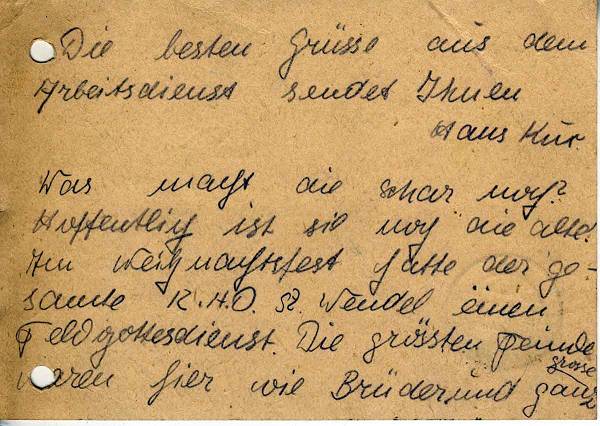 Die besten Grüsse aus dem
Arbeitsdienst sendet Ihnen
Hans Kur.
Was macht die Schar noch?
Hoffentlich ist sie noch die alte.
Im Weihnachtsfest hatte der ge-
samte St. Wendel einen
Feldgottesdienst. Die grössten Feinde
grosse
waren hier wie Brüder und ganz